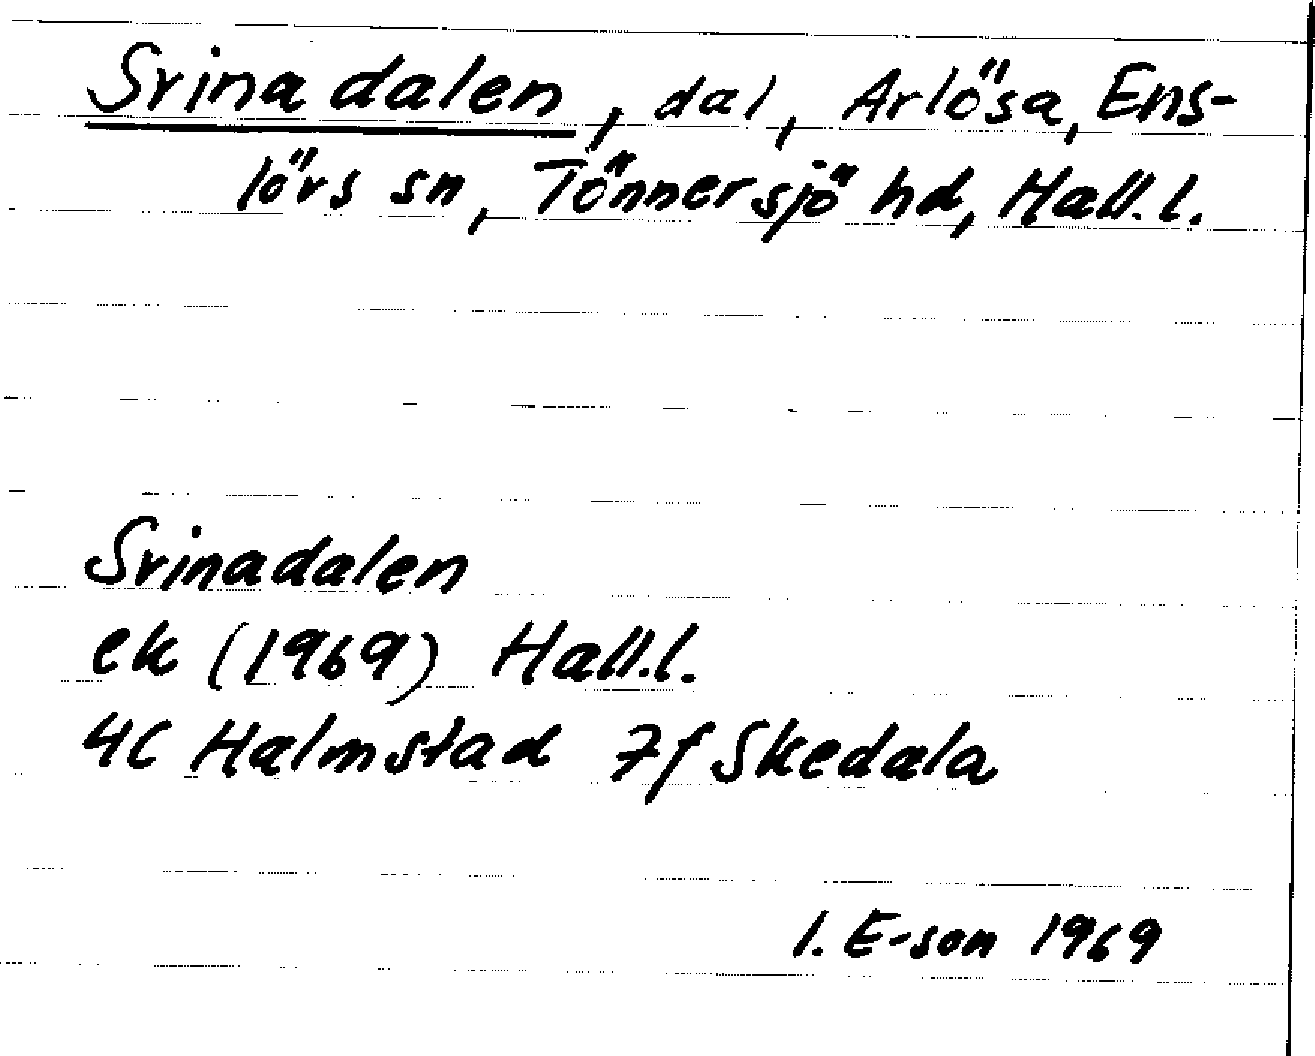 Svinadalen, dal, Arlösa, Ens-
lövs sn, Tönnersjö hd, Hall.l.
Svinadalen
ek (1969) Hall.l.
4C Halmstad 7f Skedala
I. E-son 1969